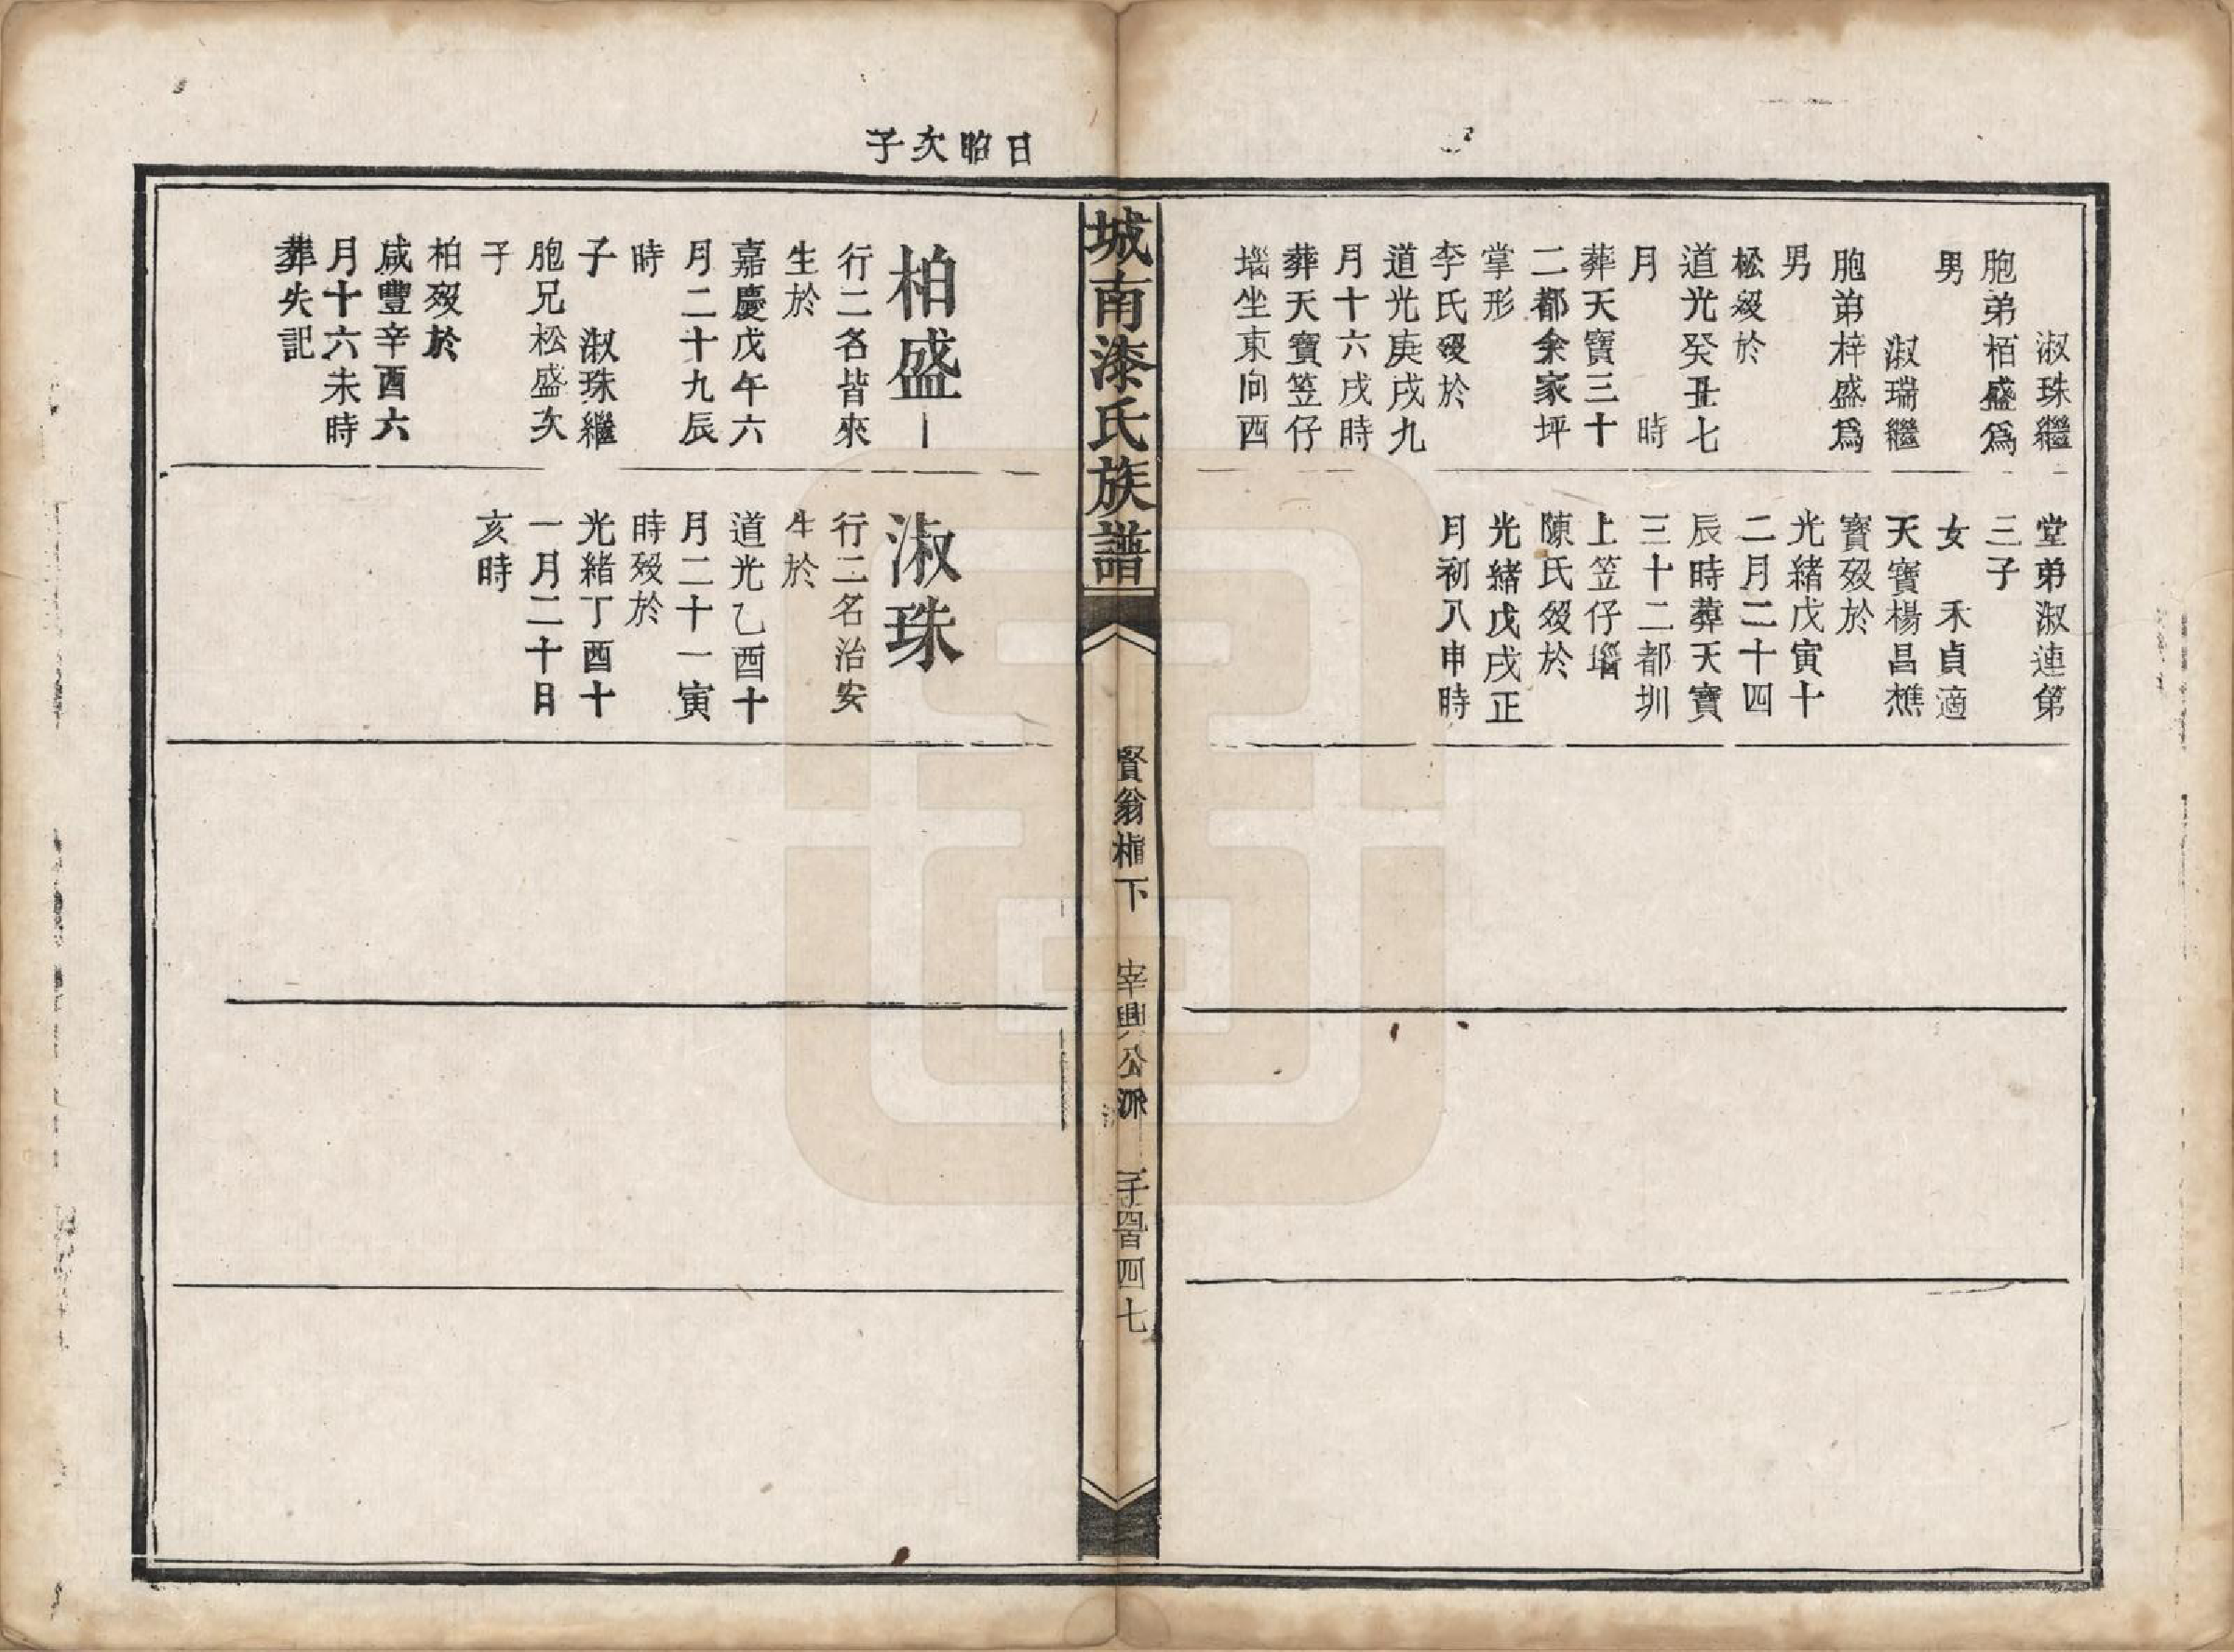 淑珠繼
胞弟栢盛爲
男
淑瑞繼
胞弟梓盛爲
男
松殁於
道光癸丑七
月　時
葬天寶三十
二都余家坪
掌形
李氏殁於
道光庚戌九
月十六戌時
葬天寶笠仔
堖坐東向西
堂弟淑連第
三子
女　禾貞適
天寶楊昌樵
寶殁於
光緒戊寅十
二月二十四
辰時葬天寶
三十二都圳
上笠仔堖
陳氏殁於
光緒戊戌正
月初八申時
城南漆氏族譜
賢翁楦下　宰興公派　三千四百四七
日昭次子
柏盛
行二名皆來
生於
嘉慶戊午六
月二十九辰
時
子　淑珠繼
胞兄松盛次
子
柏殁於
咸豐辛酉六
月十六未時
葬失記
淑珠
行二名治安
生於
道光乙酉十
月二十一寅
時殁於
光緒丁酉十
一月二十日
亥時